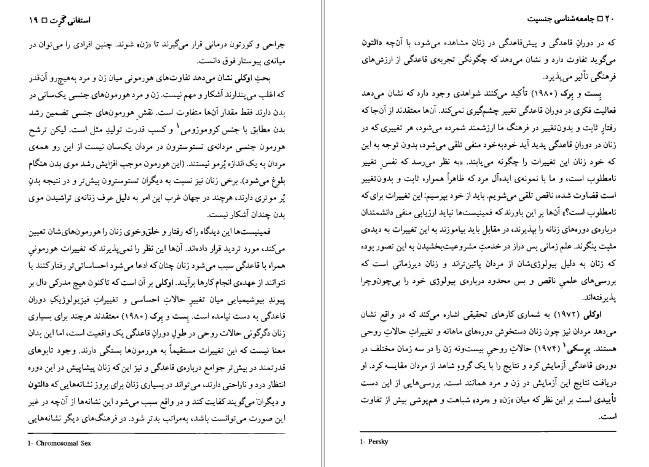 استفانی گرت □ ۱۹
جراحی و کورتون درمانی قرار می‌گیرند تا «زن» شوند. چنین افرادی را می‌توان در
میانه‌ی پیوستار فوق دانست.
بحثِ اوکلی نشان می‌دهد تفاوت‌های هورمونی میان زن و مرد به‌هیچ‌رو آن‌قدر
که اغلب می‌پندارند آشکار و مهم نیست. زن و مرد هورمون‌های جنسی یک‌سانی در
بدن دارند فقط مقدار آن‌ها متفاوت است. نقش هورمون‌های جنسی تضمین رشد
بدن مطابق با جنس کروموزومی۱ و کسب قدرت تولیدِ مثل است. لیکن ترشح
هورمون جنسی مردانه‌ی تستوسترون در مردان یک‌سان نیست از این رو همه‌ی
مردان به یک اندازه پُرمو نیستند. (این هورمون موجب افزایش رشد موی بدن هنگام
بلوغ می‌شود). برخی زنان نیز نسبت به دیگران تستوسترون بیش‌تر و در نتیجه بدنِ
پُر موتری دارند، هرچند در جهان غرب این امر به دلیل عرف زنانه‌ی تراشیدن موی
بدن چندان آشکار نیست.
فمینیست‌ها این دیدگاه را که رفتار و خلق‌وخوی زنان را هورمون‌های‌شان تعیین
می‌کند، مورد تردید قرار داده‌اند. آن‌ها این نظر را نمی‌پذیرند که تغییرات هورمونی
همراه با قاعدگی سبب می‌شود زنان چنان‌که ادعا می‌شود احساساتی‌تر رفتار کنند یا
نتوانند از عهده‌ی انجام کارها برآیند. اوکلی بر آن است که تاکنون هیچ مدرکی دال بر
پیوندِ بیوشیمیایی میان تغییرِ حالات احساسی و تغییراتِ فیزیولوژیکِ دوران
قاعدگی به دست نیامده است. پِست و پِرک (۱۹۸۰) معتقدند هرچند برای بسیاری
زنان دگرگونی حالات روحی در طول دوران قاعدگی یک واقعیت است، اما این بدان
معنا نیست که این تغییرات مستقیماً به هورمون‌ها بستگی دارند. وجود تابوهای
قدرتمند در بیش‌تر جوامع درباره‌ی قاعدگی و نیز این که زنان پیشاپیش در این دوره
انتظار درد و ناراحتی دارند، می‌تواند در بسیاری زنان برای بروز نشانه‌هایی که دالتون
و دیگران می‌گویند کفایت کند و در واقع سبب می‌شود این نشانه‌ها از آن‌چه در غیر
این صورت می‌توانست باشد، به‌مراتب بدتر شود. در فرهنگ‌های دیگر نشانه‌هایی
1- Chromosomal Sex
۲۰ □ جامعه‌شناسی جنسیت
که در دوران قاعدگی و پیش‌قاعدگی در زنان مشاهده می‌شود، با آن‌چه دالتون
می‌گوید تفاوت دارد و نشان می‌دهد که چگونگی تجربه‌ی قاعدگی از ارزش‌های
فرهنگی تأثیر می‌پذیرد.
پِست و پِرک (۱۹۸۰) تأکید می‌کنند شواهدی وجود دارد که نشان می‌دهد
فعالیت فکری در دوران قاعدگی تغییر چشم‌گیری نمی‌کند. آن‌ها معتقدند از آن‌جا که
رفتارِ ثابت و بدون‌تغییر در فرهنگ ما ارزشمند شمرده می‌شود، هر تغییری که در
زنان در دوران قاعدگی پدید آید خودبه‌خود منفی تلقی می‌شود، بدون توجه به این
که خود زنان این تغییرات را چگونه می‌یابند. «به نظر می‌رسد که نفسِ تغییر
نامطلوب است، و ما با نمونه‌ی ایده‌آل مرد که ظاهراً همواره ثابت و بدون‌تغییر
است قضاوت شده، ناقص تلقی می‌شویم. باید از خود بپرسیم: این تغییرات برای که
نامطلوب است؟» آن‌ها بر این باورند که فمینیست‌ها نباید ارزیابی منفی دانشمندان
درباره‌ی دوره‌های زنانه را بپذیرند، در مقابل باید بیاموزند به این تغییرات به دیده‌ی
مثبت بنگرند. علم زمانی بس دراز در خدمتِ مشروعیت‌بخشیدن به این تصور بود»
که زنان به دلیل بیولوژی‌شان از مردان پائین‌ترند و زنان دیرزمانی است که
بررسی‌های علمیِ ناقص و بس محدود درباره‌ی بیولوژی خود را بی‌چون‌وچرا
پذیرفته‌اند.
اوکلی (۱۹۷۲) به شماری کارهای تحقیقاتی اشاره می‌کند که در واقع نشان
می‌دهد مردان نیز چون زنان دستخوش دوره‌های ماهانه و تغییراتِ حالات روحی
هستند. پِرسکی۱ (۱۹۷۴) حالاتِ روحی بیست‌ونه زن را در سه زمان مختلف در
دوره‌ی قاعدگی آزمایش کرد و نتایج را با یک گروهِ شاهد از مردان مقایسه کرد. او
دریافت نتایج این آزمایش در زن و مرد همانند است. بررسی‌هایی از این دست
تأییدی است بر این نظر که میان «زن» و «مرد» شباهت و هم‌پوشی بیش از تفاوت
است.
1- Persky